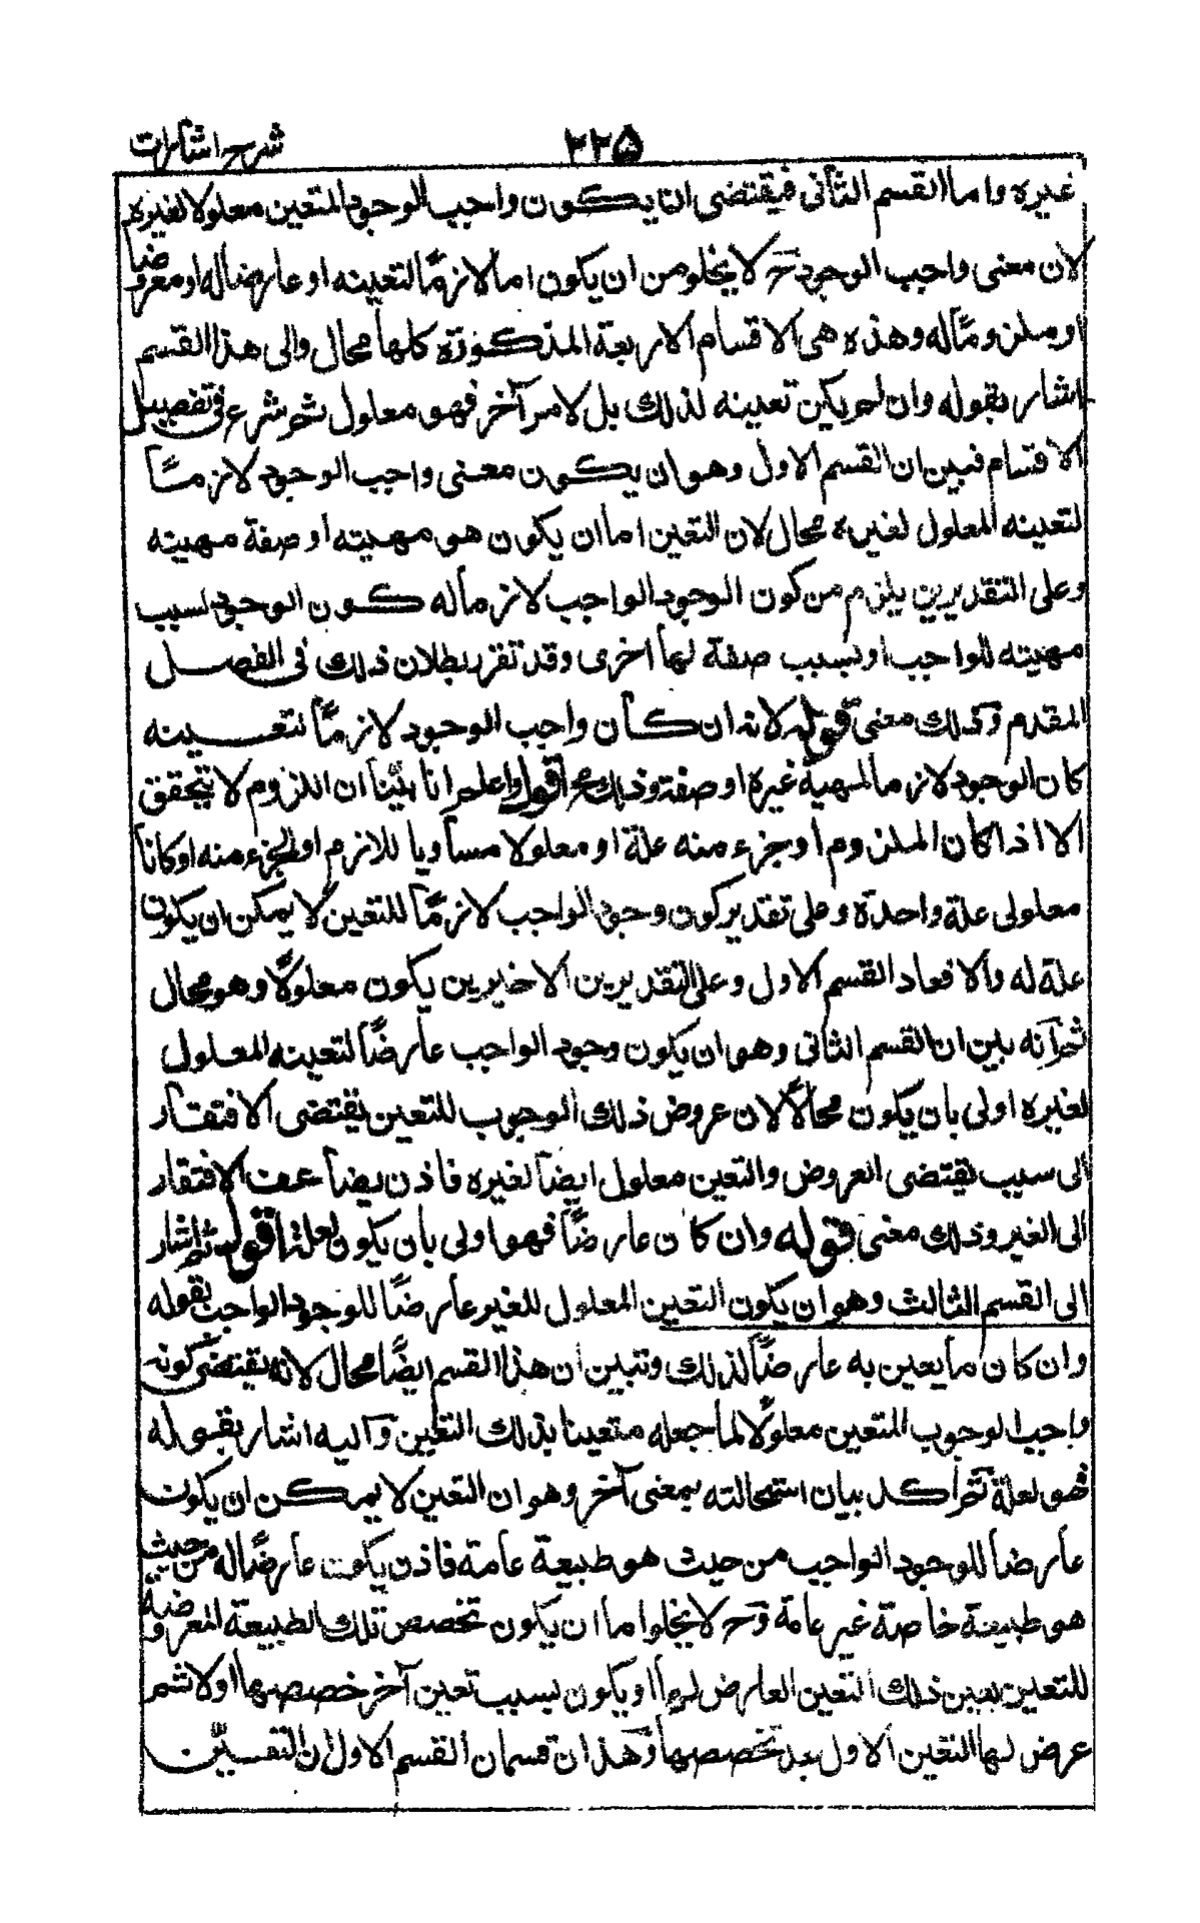 شرح اشارات
٢٢٥
غيره واما القسم الثانى فيقتضى ان يكون واجب الوجود المتعين معلولا لغيره
لان معنى واجب الوجود ح لا يخلو من ان يكون اما لازمًا لتعينه او عارضا له او معروضا
او ملزومًا له وهذه هى الاقسام الاربعة المذكورة كلها محال والى هذا القسم
اشار بقوله وان لم يكن تعينه لذلك بل لامر آخر فهو معلول ثم شرع فى تفصيل
الاقسام فبين ان القسم الاول وهو ان يكون معنى واجب الوجود لازمًا
لتعينه المعلول لغيره محال لان التعين اما ان يكون هو مهيته او صفة مهيته
وعلى التقديرين يلزم من كون الوجود الواجب لازما له كون الوجود بسبب
مهيته للواجب او بسبب صفة لها اخرى وقد تقرر بطلان ذلك فى الفصل
المقدم وذلك معنى قوله لانه ان كان واجب الوجود لازمًا لتعينه
كان الوجود لازما لمهية غيره او صفة وذلك مح اقول واعلم انا بيّنا ان اللزوم لا يتحقق
الا اذا كان الملزوم او جزء منه علة او معلولا مساويا للازم او لجزء منه او كانا
معلولى علة واحدة وعلى تقدير كون وجود الواجب لازمًا للتعين لا يمكن ان يكون
علة له والا فعاد القسم الاول وعلى التقديرين الاخيرين يكون معلولًا وهو محال
ثم انه بين ان القسم الثانى وهو ان يكون وجود الواجب عارضًا لتعينه المعلول
لغيره اولى بان يكون محالًا لان عروض ذلك الوجوب للتعين يقتضى الافتقار
الى سبب يقتضى العروض والتعين معلول ايضا لغيره فاذن يضاعف الافتقار
الى الغير وذلك معنى قوله وان كان عارضًا فهو اولى بان يكون لعلة اقول ثم اشار
الى القسم الثالث وهو ان يكون التعين المعلول للغير عارضًا للوجود الواجب بقوله
وان كان ما يعين به عارضًا لذلك وتبين ان هذا القسم ايضًا محال لانه يقتضى كونه
واجب الوجوب المتعين معلولًا لما جعله متعينا بذلك التعين واليه اشار بقوله
فهو لعلة ثم اكد بيان استحالته بمعنى آخر وهو ان التعين لا يمكن ان يكون
عارضا للوجود الواجب من حيث هو طبيعة عامة فاذن يكون عارضًا له من حيث
هو طبيعة خاصة غير عامة وح لا يخلوا ما ان يكون تخصص تلك الطبيعة المعروضة
للتعين بعين ذلك التعين العارض لها او يكون بسبب تعين آخر خصصها اولا ثم
عرض لها التعين الاول بعد تخصصها وهذان قسمان القسم الاول ان التعين